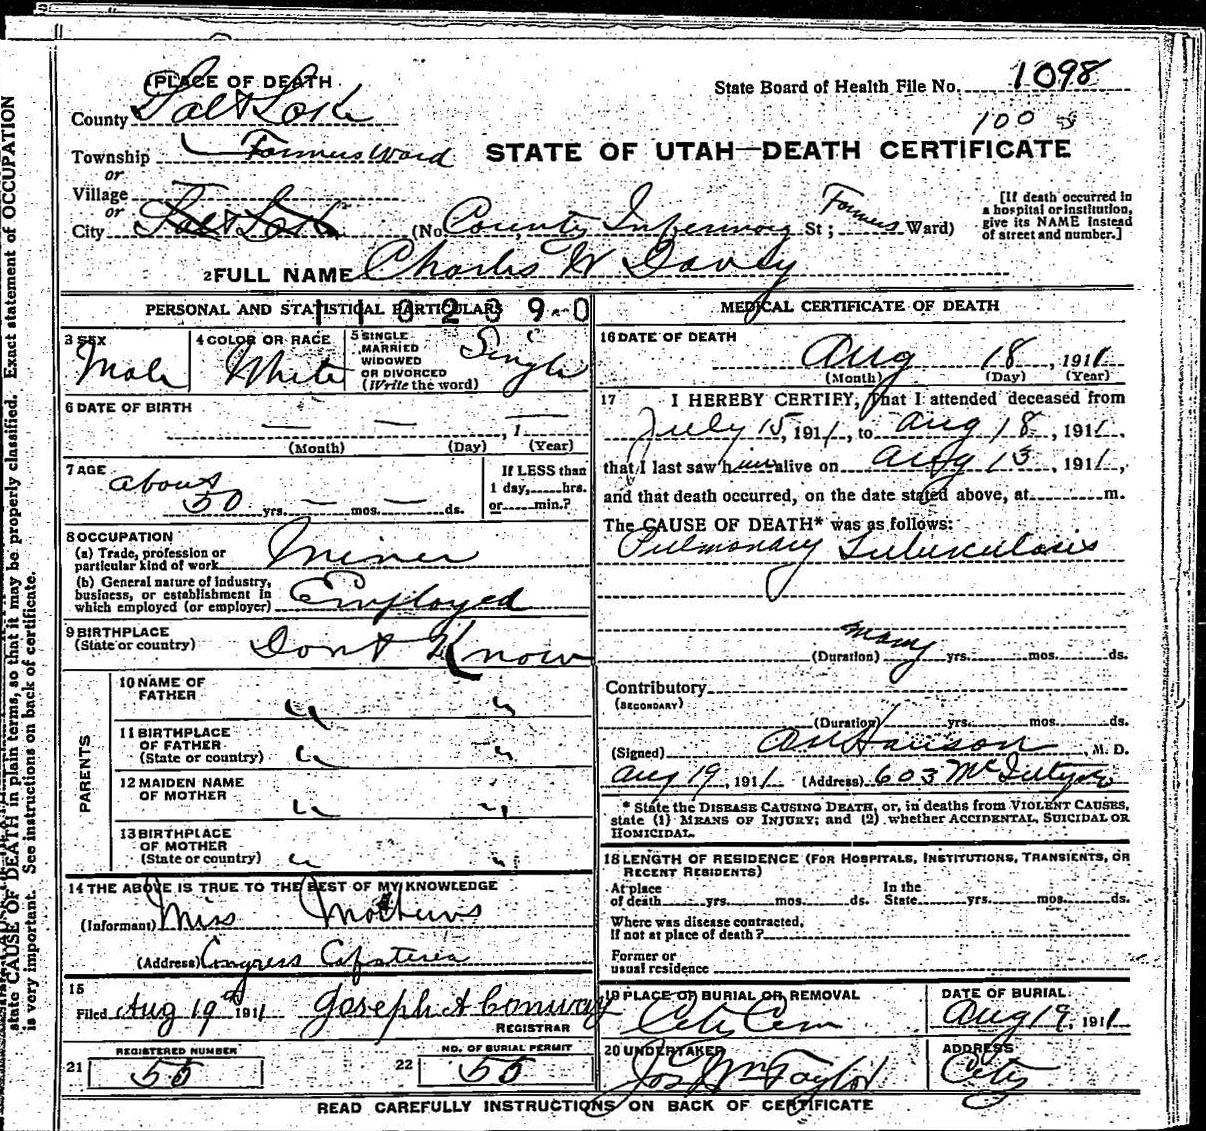 state CAUSE OF DEATH in plain terms, so that it may be properly classified. Exact statement of OCCUPATION
is very important. See instructions on back of certificate.
PLACE OF DEATH
State Board of Health File No. 1098
County Salt Lake
100
Township Farmers Ward
STATE OF UTAH—DEATH CERTIFICATE
or
Village
or
City Salt Lake (No. County Infirmary St; Farmers Ward)
[If death occurred in
a hospital or institution,
give its NAME instead
of street and number.]
2 FULL NAME Charles W Davey
PERSONAL AND STATISTICAL PARTICULARS
3 SEX Male
4 COLOR OR RACE White
5 SINGLE
MARRIED
WIDOWED
OR DIVORCED
(Write the word) Single
6 DATE OF BIRTH
— — , 1 —
(Month) (Day) (Year)
7 AGE
about
50 yrs. — mos. — ds.
If LESS than
1 day, hrs.
or min.?
8 OCCUPATION
(a) Trade, profession or
particular kind of work Miner
(b) General nature of industry,
business, or establishment in
which employed (or employer) Employed
9 BIRTHPLACE
(State or country) Dont Know
PARENTS
10 NAME OF
FATHER " "
11 BIRTHPLACE
OF FATHER
(State or country) " "
12 MAIDEN NAME
OF MOTHER " "
13 BIRTHPLACE
OF MOTHER
(State or country) " "
14 THE ABOVE IS TRUE TO THE BEST OF MY KNOWLEDGE
(Informant) Miss Mathews
(Address) Congress Cafateria
15
Filed Aug 19th 1911 Joseph A Conway
REGISTRAR
REGISTERED NUMBER
21 55
NO. OF BURIAL PERMIT
22 55
MEDICAL CERTIFICATE OF DEATH
16 DATE OF DEATH
Aug 18, 1911
(Month) (Day) (Year)
17 I HEREBY CERTIFY, That I attended deceased from
July 15, 1911, to Aug 18, 1911,
that I last saw him alive on Aug 13, 1911,
and that death occurred, on the date stated above, at m.
The CAUSE OF DEATH* was as follows:
Pulmonary Tuberculosis
(Duration) many yrs. mos. ds.
Contributory
(SECONDARY)
(Duration) yrs. mos. ds.
(Signed) , M. D.
Aug 19, 1911 (Address) 603 McIntyre
* State the DISEASE CAUSING DEATH, or, in deaths from VIOLENT CAUSES,
state (1) MEANS OF INJURY; and (2) whether ACCIDENTAL, SUICIDAL OR
HOMICIDAL.
18 LENGTH OF RESIDENCE (FOR HOSPITALS, INSTITUTIONS, TRANSIENTS, OR
RECENT RESIDENTS)
At place
of death yrs. mos. ds.
In the
State yrs. mos. ds.
Where was disease contracted,
If not at place of death?
Former or
usual residence
19 PLACE OF BURIAL OR REMOVAL
City Cem
DATE OF BURIAL
Aug 19, 1911
20 UNDERTAKER
Jos Wm Taylor
ADDRESS
City
READ CAREFULLY INSTRUCTIONS ON BACK OF CERTIFICATE